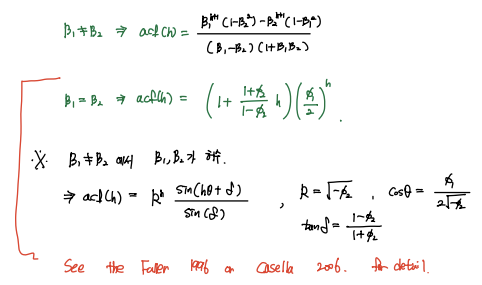 B₁ ≠ B₂ ⇒ acf(h) = B₁ʰ⁺¹(1-B₂²) - B₂ʰ⁺¹(1-B₁²) / (B₁-B₂)(1+B₁B₂)
B₁ = B₂ ⇒ acf(h) = (1 + (1+ϕ₂)/(1-ϕ₂) h)(ϕ₁/2)ʰ.
※ B₁ ≠ B₂ 에서 B₁, B₂가 허수.
⇒ acf(h) = Rʰ sin(hθ+δ) / sin(δ) , R = √-ϕ₂ , cosθ = ϕ₁ / 2√-ϕ₂
tanδ = (1-ϕ₂) / (1+ϕ₂)
See the Fuller 1996 or Casella 2006. for detail.